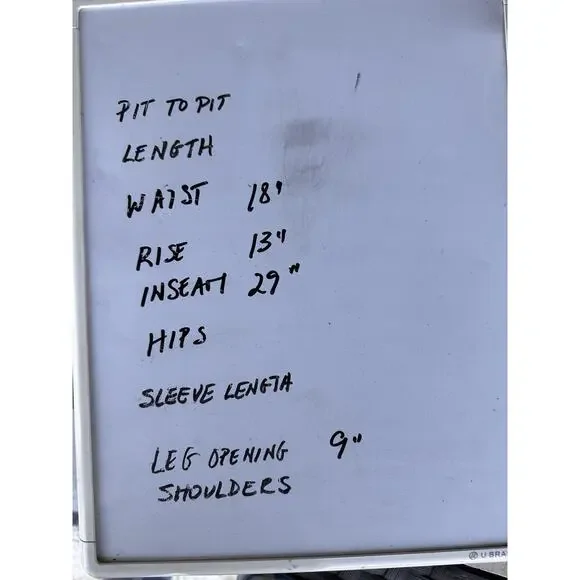 PIT TO PIT
LENGTH
WAIST 18"
RISE 13"
INSEAM 29"
HIPS
SLEEVE LENGTH
LEG OPENING 9"
SHOULDERS
U BRA